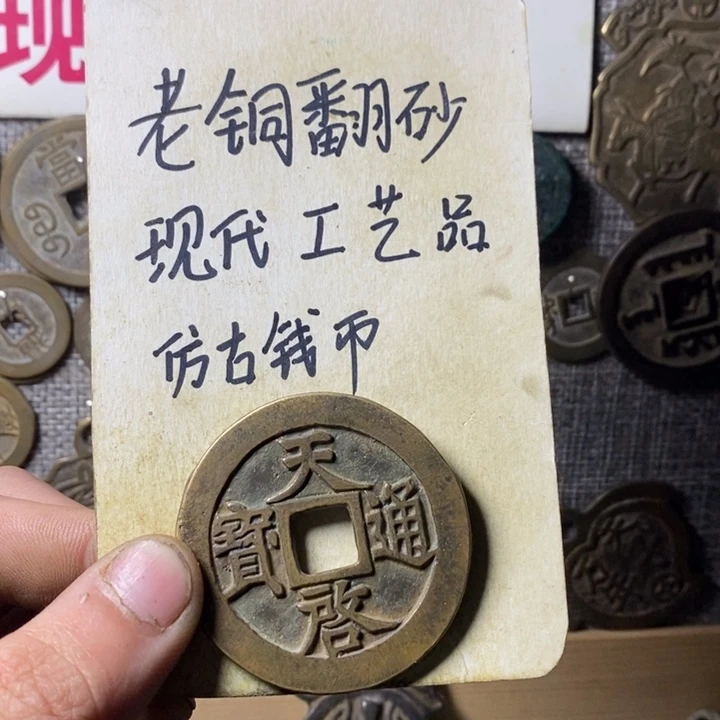 现
老铜翻砂
现代工艺品
仿古钱币
天啓通寶
當